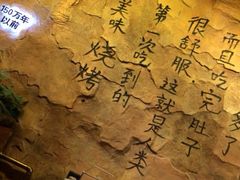 150万年
以前
多了
而且吃完肚子
很舒服 这就是人类
第一次吃到的
美味 烧烤